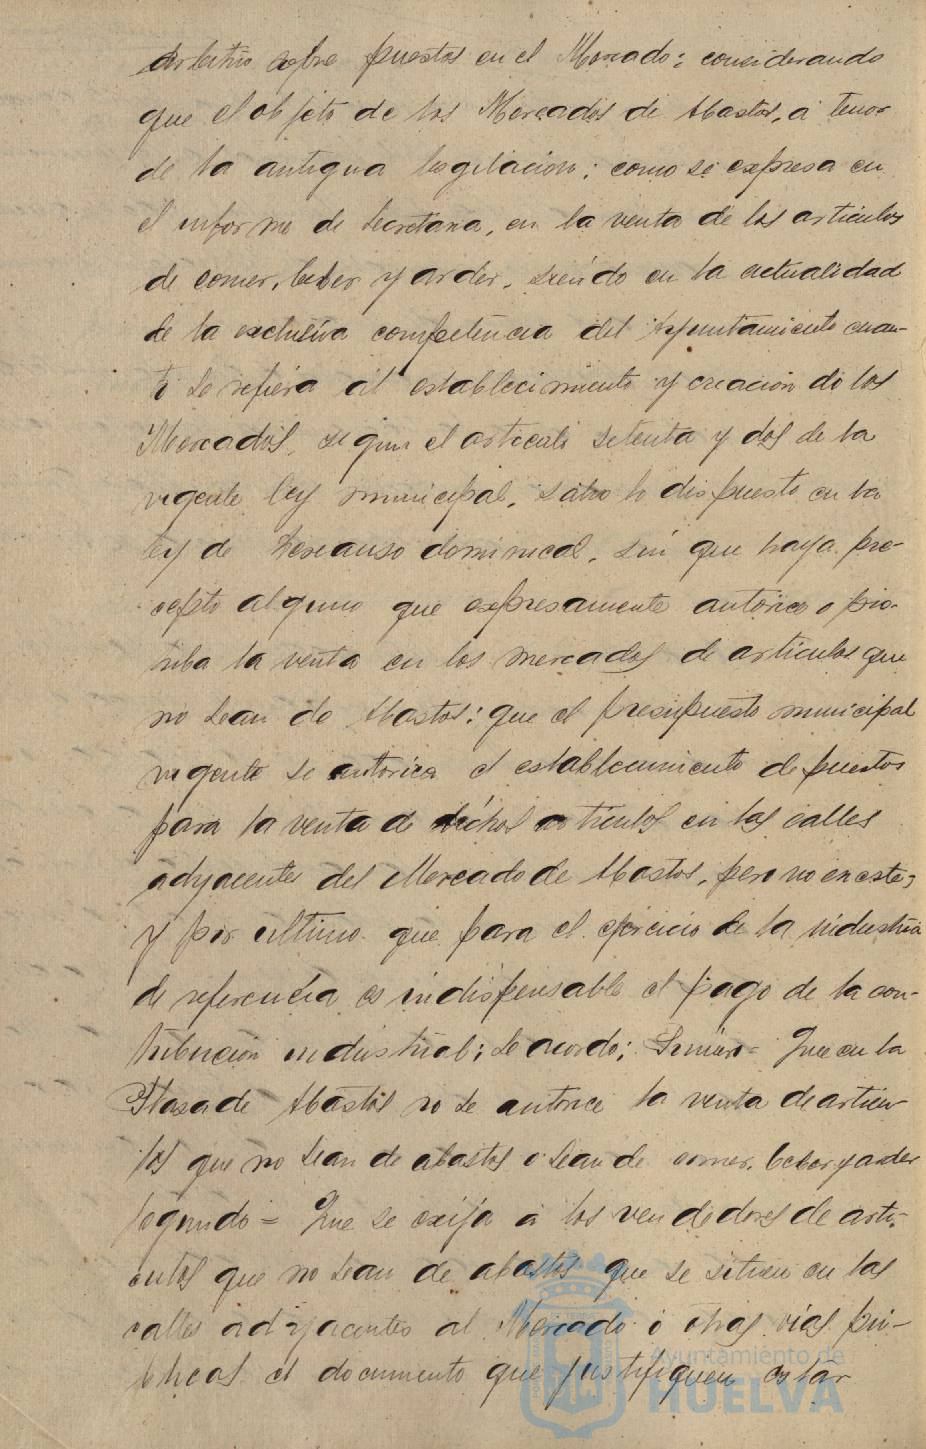 arbitrio sobre puestos en el Mercado; considerando
que el objeto de los Mercados de Abastos, á tenor
de la antigua legilacion; como se expresa en
el informe de Secretaria, en la venta de los articulos
de comer, beber y arder, siendo en la actualidad
de la exclusiva competencia del Ayuntamiento cuan-
to se refiera al establecimiento y creacion de los
Mercados, segun el articulo setenta y dos de la
vigente ley municipal, salvo lo dispuesto en la
ley de Descanso dominical, sin que haya pre-
cepto alguno que expresamente autorice o pro-
hiba la venta en los mercados de articulos que
no sean de Abastos: que el presupuesto municipal
vigente se autorica el establecimiento de puestos
para la venta de dichos articulos en las calles
adyacentes del Mercado de Abastos, pero no en este;
y por ultimo que para el ejercicio de la industria
de referencia es indispensable el pago de la con-
tribucion industrial; se acordo; = Que en la
Plaza de Abastos no se autorice la venta de articu-
los que no sean de abastos o sean de comer, beber y arder
segundo = Que se exija á los vendedores de arti-
culos que no sean de abastos que se situen en las
calles adyacentes al Mercado ó otras vias pú-
blicas el documento que justifiquen estar
Ayuntamiento de
HUELVA